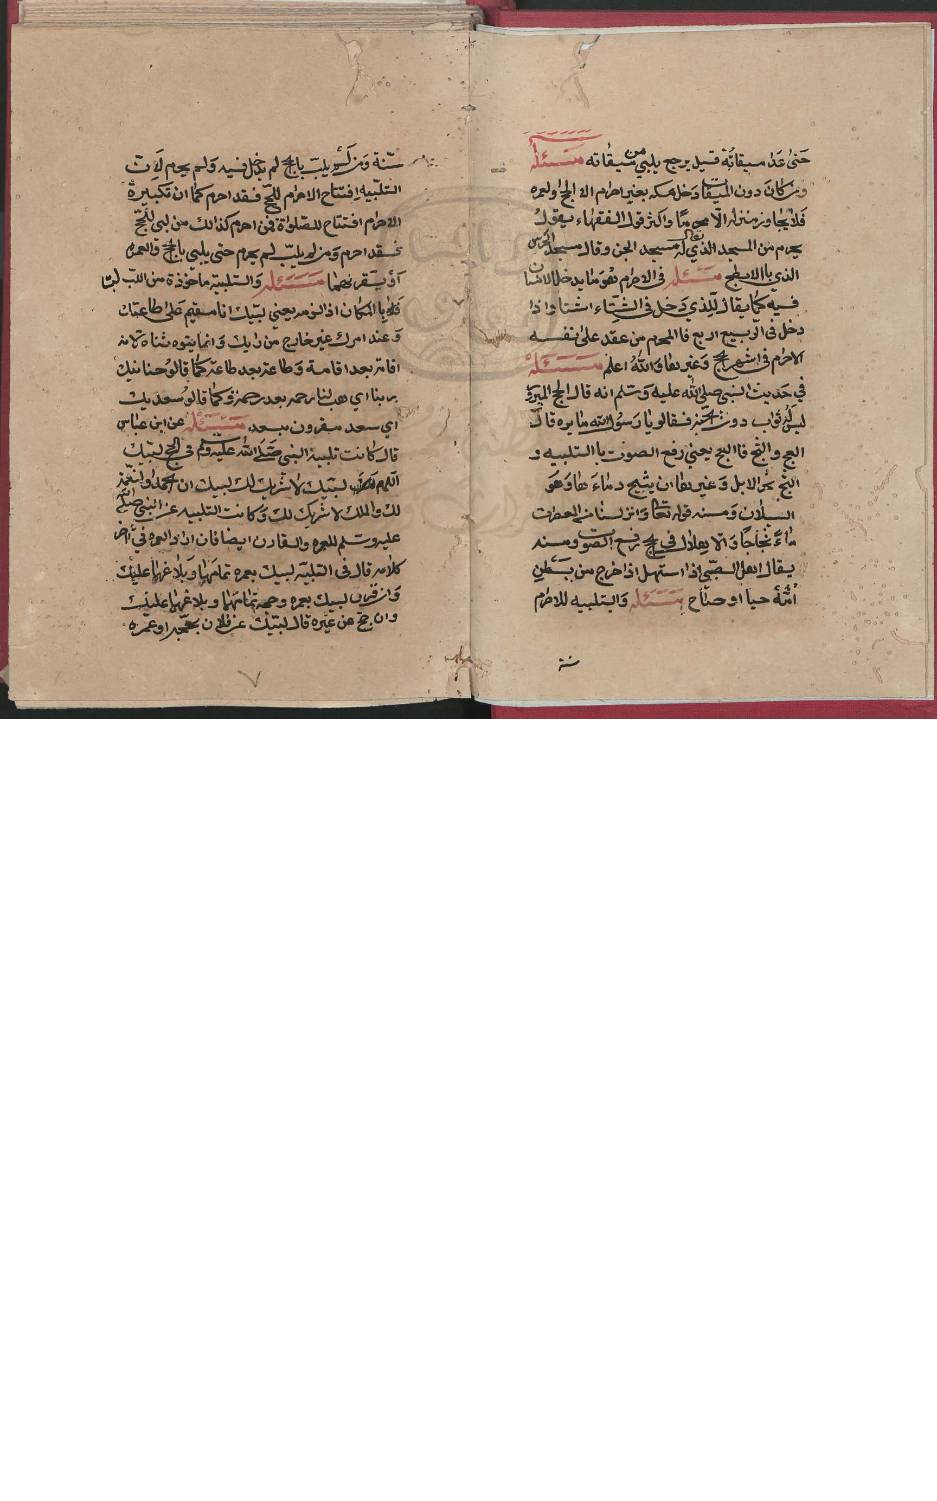 حتى عدا ميقاته قيل يرجع يلبي من ميقاته مسئلة
ومن كان دون الميقات دخل مكه بغير احرام الا الحج اولعمره
فلا يجاوز منزله الا محرما وكثر قول الفقهاء يقول
يحرم من المسجد الذي يقال له مسجد الجن وقال مسجد الحرس
الذي بالابطح مسئله في الاحرام فهو ما يدخل الانسان
فيه كما يقال للذي دخل في الشتاء اشتا واذا
دخل في الربيع اربع فاالمحرم من عقد على نفسه
الاحرام في اشهر الحج وغيرها والله اعلم مسئلة
في حديث النبي صلى الله عليه وسلم انه قال الحج المبرور
ليس له ثواب دون الجنة فقالو يا رسول الله ما بره قال
العج والثج فاالعج يعني رفع الصوت باالتلبيه و
الثج نحر الابل وغيرها ان يثج دماءها وهو
السيلان ومنه قوله تعالى وانزلنا من المعصرات
ماءً ثجاجاً والاهلال في الحج رفع الصوت ومنه
يقال اهل الصبي اذا استهل اذا خرج من بطن
امه حيا او صاح مسئلة والتلبيه للاحرام
سنة
سنة ومن لم يلب باالحج لم يدخل فيه ولم يحرم لان
التلبيه افتتاح الاحرام للحج فقد احرم كما ان تكبيرة
الاحرام افتتاح للصلوة فمن احرم كذالك من لبى للحج
فقد احرم ومن لم يلب لم يحرم حتى يلبي باالحج والعمره
او بقرنهما مسئلة والتلبية ماخوذة من اللب لبا
فلان باالمكان اذا لزمه يعني لبيك انا مقيم على طاعتك
وعند امرك غير خارج من رايك وانما يتوه ثناه لانه
اقامه بعد اقامة وطاعة بعد طاعة كما قالو حنانيك
ربنا اي هب لنا رحمه بعد رحمة وكما قالو سعديك
اي سعد مقرون بسعد مسئلة عن ابن عباس
قال كانت تلبية النبي صلى الله عليه وسلم في الحج لبيك
اللهم لبيك لا شريك لك لبيك ان الحمد والنعمة
لك والملك لا شريك لك وكانت التلبيه عن النبي صلى
عليه وسلم للعمره والقارن ايضا فان اراد العمره في اخر
كلامه قال في التلبيه لبيك بعمره تمامها وبلاغها عليك
وان قرن لبيك بعمره وحجه تمامها وبلاغها عليك
وان حج عن غيره قال لبيك عن فلان بحجه او عمره